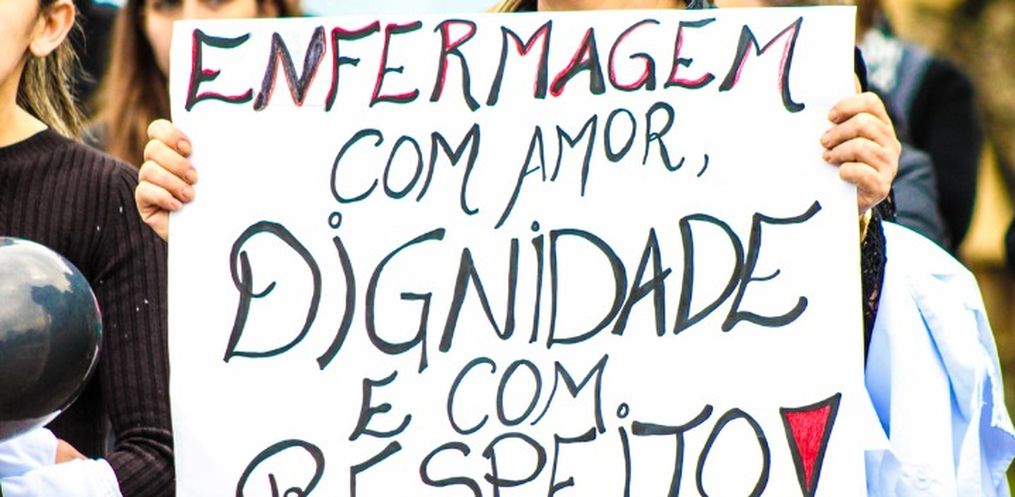 ENFERMAGEM
COM AMOR,
DIGNIDADE
E COM
RESPEITO!